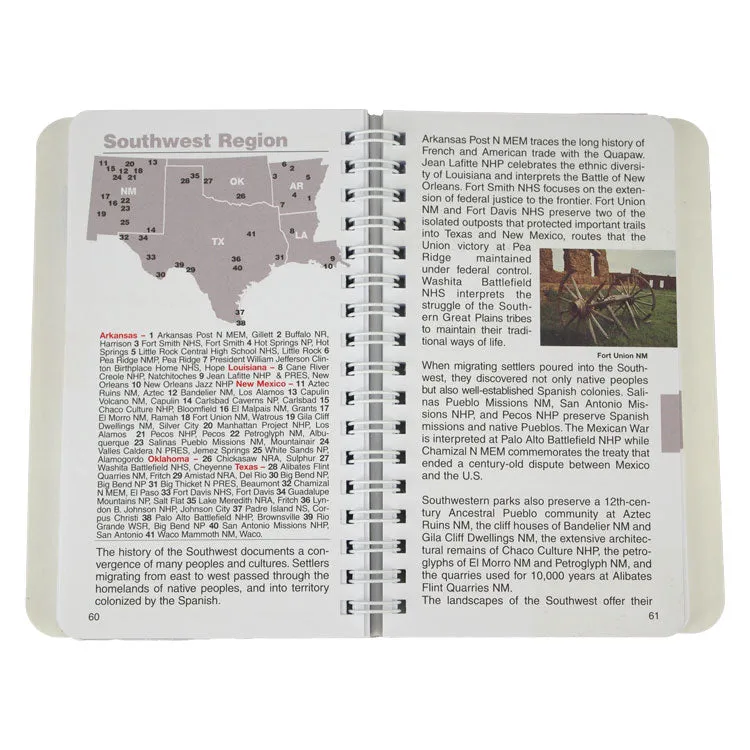 Southwest Region
11
20
13
15 12 18
24 21
NM
17
16 22
23
19
25
14
32 34
28 35
27
OK
26
6 2
3
5
AR
4
7
1
TX
41
LA
8
33
30
20 29
36
40
31
9
10
37
38
Arkansas – 1 Arkansas Post N MEM, Gillett 2 Buffalo NR,
Harrison 3 Fort Smith NHS, Fort Smith 4 Hot Springs NP, Hot
Springs 5 Little Rock Central High School NHS, Little Rock 6
Pea Ridge NMP, Pea Ridge 7 President William Jefferson Clin-
ton Birthplace Home NHS, Hope Louisiana – 8 Cane River
Creole NHP, Natchitoches 9 Jean Lafitte NHP & PRES, New
Orleans 10 New Orleans Jazz NHP New Mexico – 11 Aztec
Ruins NM, Aztec 12 Bandelier NM, Los Alamos 13 Capulin
Volcano NM, Capulin 14 Carlsbad Caverns NP, Carlsbad 15
Chaco Culture NHP, Bloomfield 16 El Malpais NM, Grants 17
El Morro NM, Ramah 18 Fort Union NM, Watrous 19 Gila Cliff
Dwellings NM, Silver City 20 Manhattan Project NHP, Los
Alamos 21 Pecos NHP, Pecos 22 Petroglyph NM, Albu-
querque 23 Salinas Pueblo Missions NM, Mountainair 24
Valles Caldera N PRES, Jemez Springs 25 White Sands NP,
Alamogordo Oklahoma – 26 Chickasaw NRA, Sulphur 27
Washita Battlefield NHS, Cheyenne Texas – 28 Alibates Flint
Quarries NM, Fritch 29 Amistad NRA, Del Rio 30 Big Bend NP,
Big Bend NP 31 Big Thicket N PRES, Beaumont 32 Chamizal
N MEM, El Paso 33 Fort Davis NHS, Fort Davis 34 Guadalupe
Mountains NP, Salt Flat 35 Lake Meredith NRA, Fritch 36 Lyn-
don B. Johnson NHP, Johnson City 37 Padre Island NS, Cor-
pus Christi 38 Palo Alto Battlefield NHP, Brownsville 39 Rio
Grande WSR, Big Bend NP 40 San Antonio Missions NHP,
San Antonio 41 Waco Mammoth NM, Waco.
The history of the Southwest documents a con-
vergence of many peoples and cultures. Settlers
migrating from east to west passed through the
homelands of native peoples, and into territory
colonized by the Spanish.
60
Arkansas Post N MEM traces the long history of
French and American trade with the Quapaw.
Jean Lafitte NHP celebrates the ethnic diversi-
ty of Louisiana and interprets the Battle of New
Orleans. Fort Smith NHS focuses on the exten-
sion of federal justice to the frontier. Fort Union
NM and Fort Davis NHS preserve two of the
isolated outposts that protected important trails
into Texas and New Mexico, routes that the
Union victory at Pea
Ridge maintained
under federal control.
Washita Battlefield
NHS interprets the
struggle of the South-
ern Great Plains tribes
to maintain their tradi-
tional ways of life.
Fort Union NM
When migrating settlers poured into the South-
west, they discovered not only native peoples
but also well-established Spanish colonies. Sali-
nas Pueblo Missions NM, San Antonio Mis-
sions NHP, and Pecos NHP preserve Spanish
missions and native Pueblos. The Mexican War
is interpreted at Palo Alto Battlefield NHP while
Chamizal N MEM commemorates the treaty that
ended a century-old dispute between Mexico
and the U.S.
Southwestern parks also preserve a 12th-cen-
tury Ancestral Pueblo community at Aztec
Ruins NM, the cliff houses of Bandelier NM and
Gila Cliff Dwellings NM, the extensive architec-
tural remains of Chaco Culture NHP, the petro-
glyphs of El Morro NM and Petroglyph NM, and
the quarries used for 10,000 years at Alibates
Flint Quarries NM.
The landscapes of the Southwest offer their
61